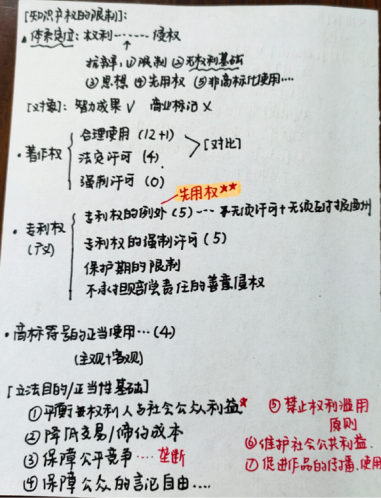 [知识产权的限制]：
·体系定位：权利……侵权
↑
抗辩：①限制 ②无权利基础
③思想 ④先用权 ⑤非商标性使用…
[对象]：智力成果 √ 商业标记 ×
·著作权
合理使用（12+1）
法定许可（4）
强制许可（0）
>[对比]
先用权★★
·专利权（广义）
专利权的例外（5）…无须许可+无须支付报酬
专利权的强制许可（5）
保护期的限制
不承担赔偿责任的善意侵权
·商标符号的正当使用…（4）
（主观+客观）
[立法目的/正当性基础]
①平衡权利人与社会公众利益★
②降低交易/缔约成本
③保障公平竞争…垄断
④保障公众的言论自由…
⑤禁止权利滥用原则
⑥维护社会公共利益.
⑦促进作品的传播.使用